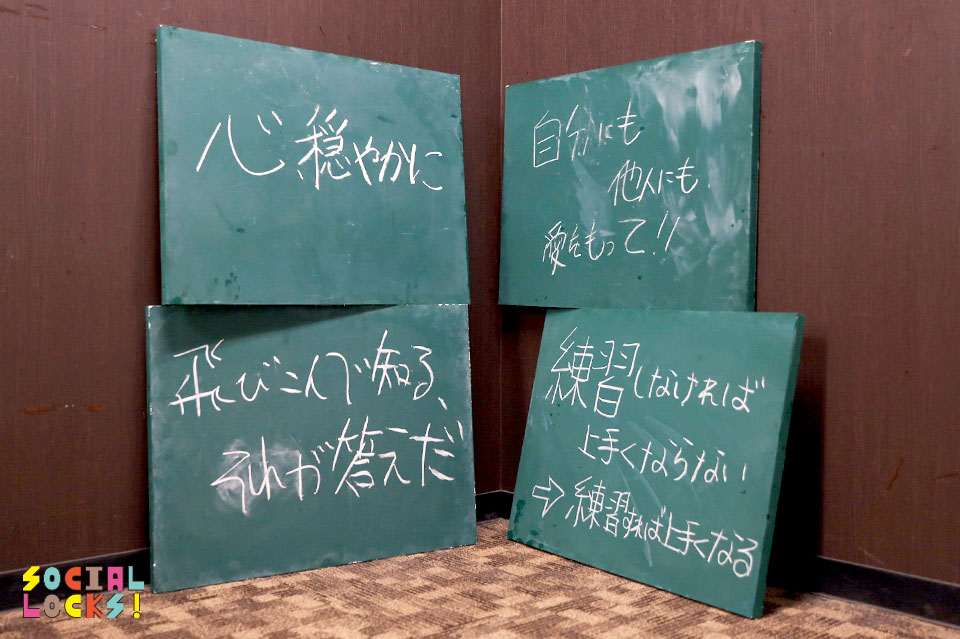 心穏やかに
自分にも
他人にも
愛をもって!!
飛びこんで知る、
それが答えだ
練習しなければ
上手くならない
⇨練習すれば上手くなる
SOCIAL
LOCKS!